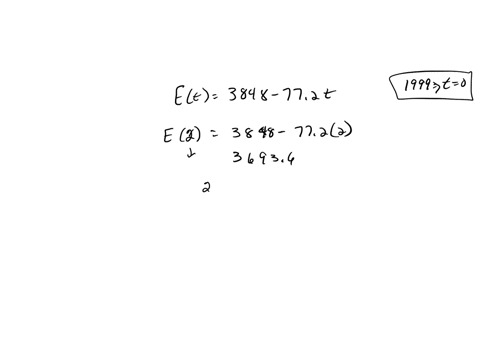 1999 ⇒ t=0
E(t) = 3848 - 77.2t
E(2) = 3848 - 77.2(2)
↓ 3693.6
2